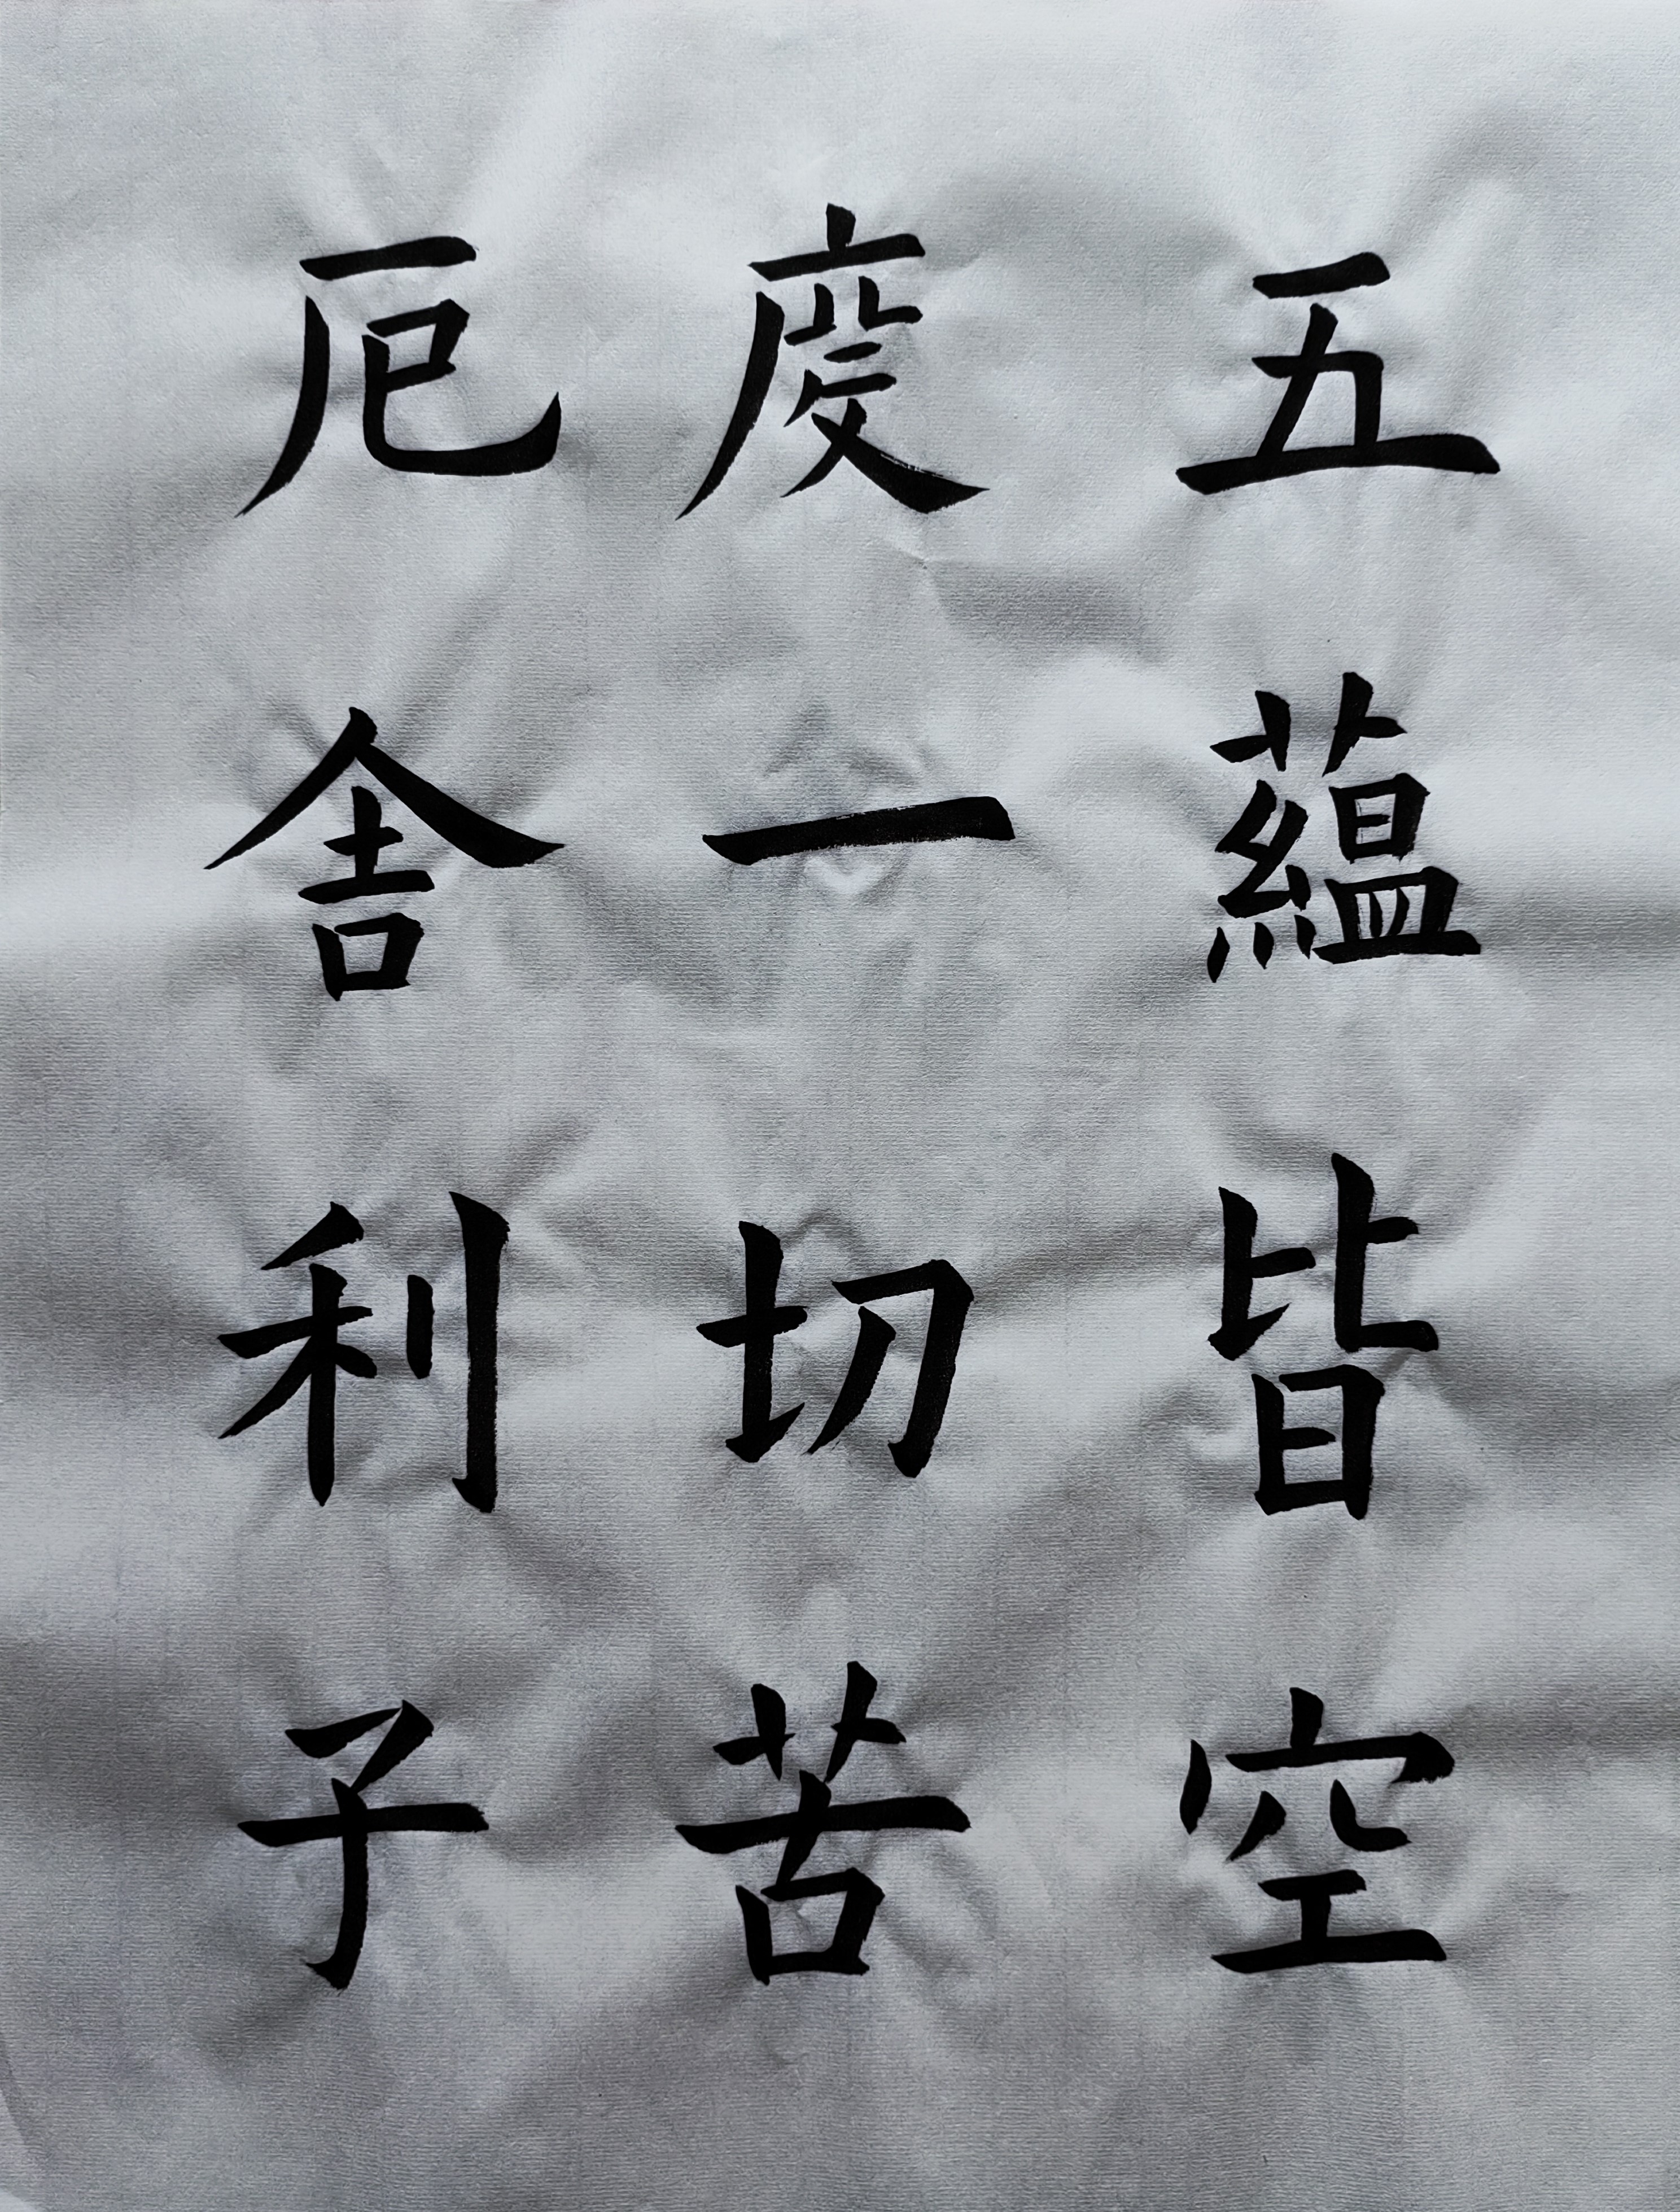 五蘊皆空
度一切苦
厄舍利子